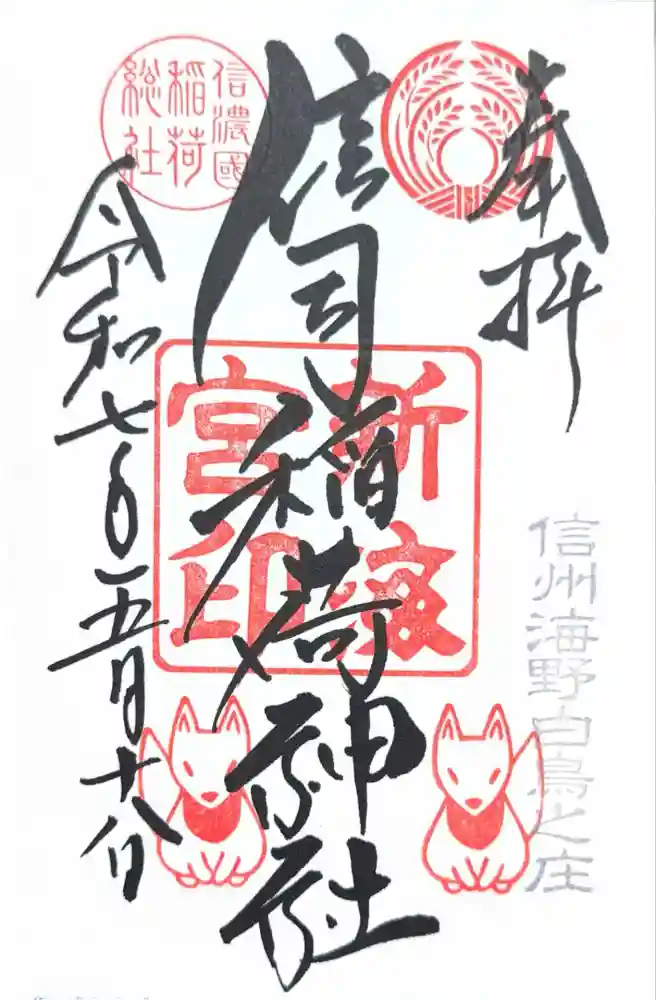 奉拝
信州海野白鳥之庄
信司稲荷神社
信濃國
稲荷
総社
新
宮印
令和七年五月十八日